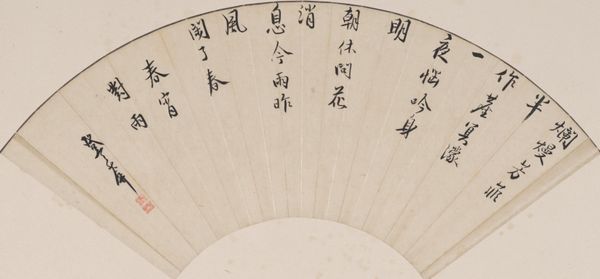 爛熳芳菲
半
作塵冥濛
一
夜惱吟身
明
朝休問花
消
息今雨昨
風
閙了春
春宵
對雨